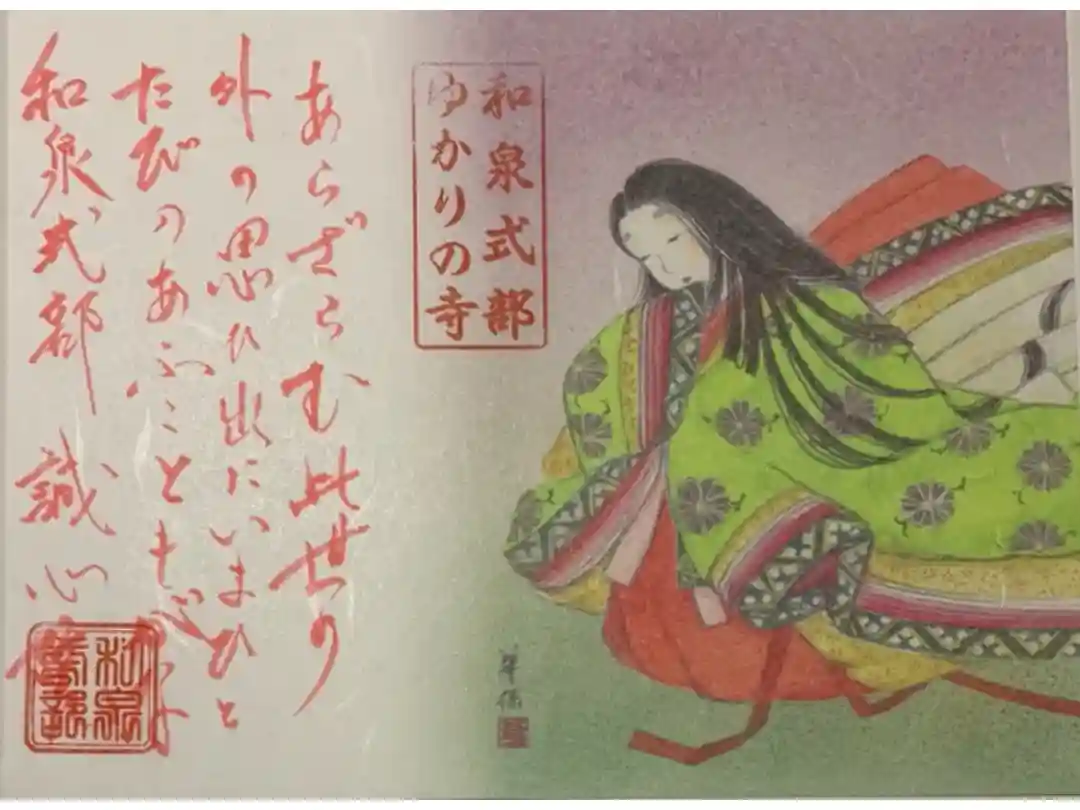 和泉式部
ゆかりの寺
あらざらむ此世の
外の思ひ出にいまひと
たびのあふこともがな
和泉式部 誠心院